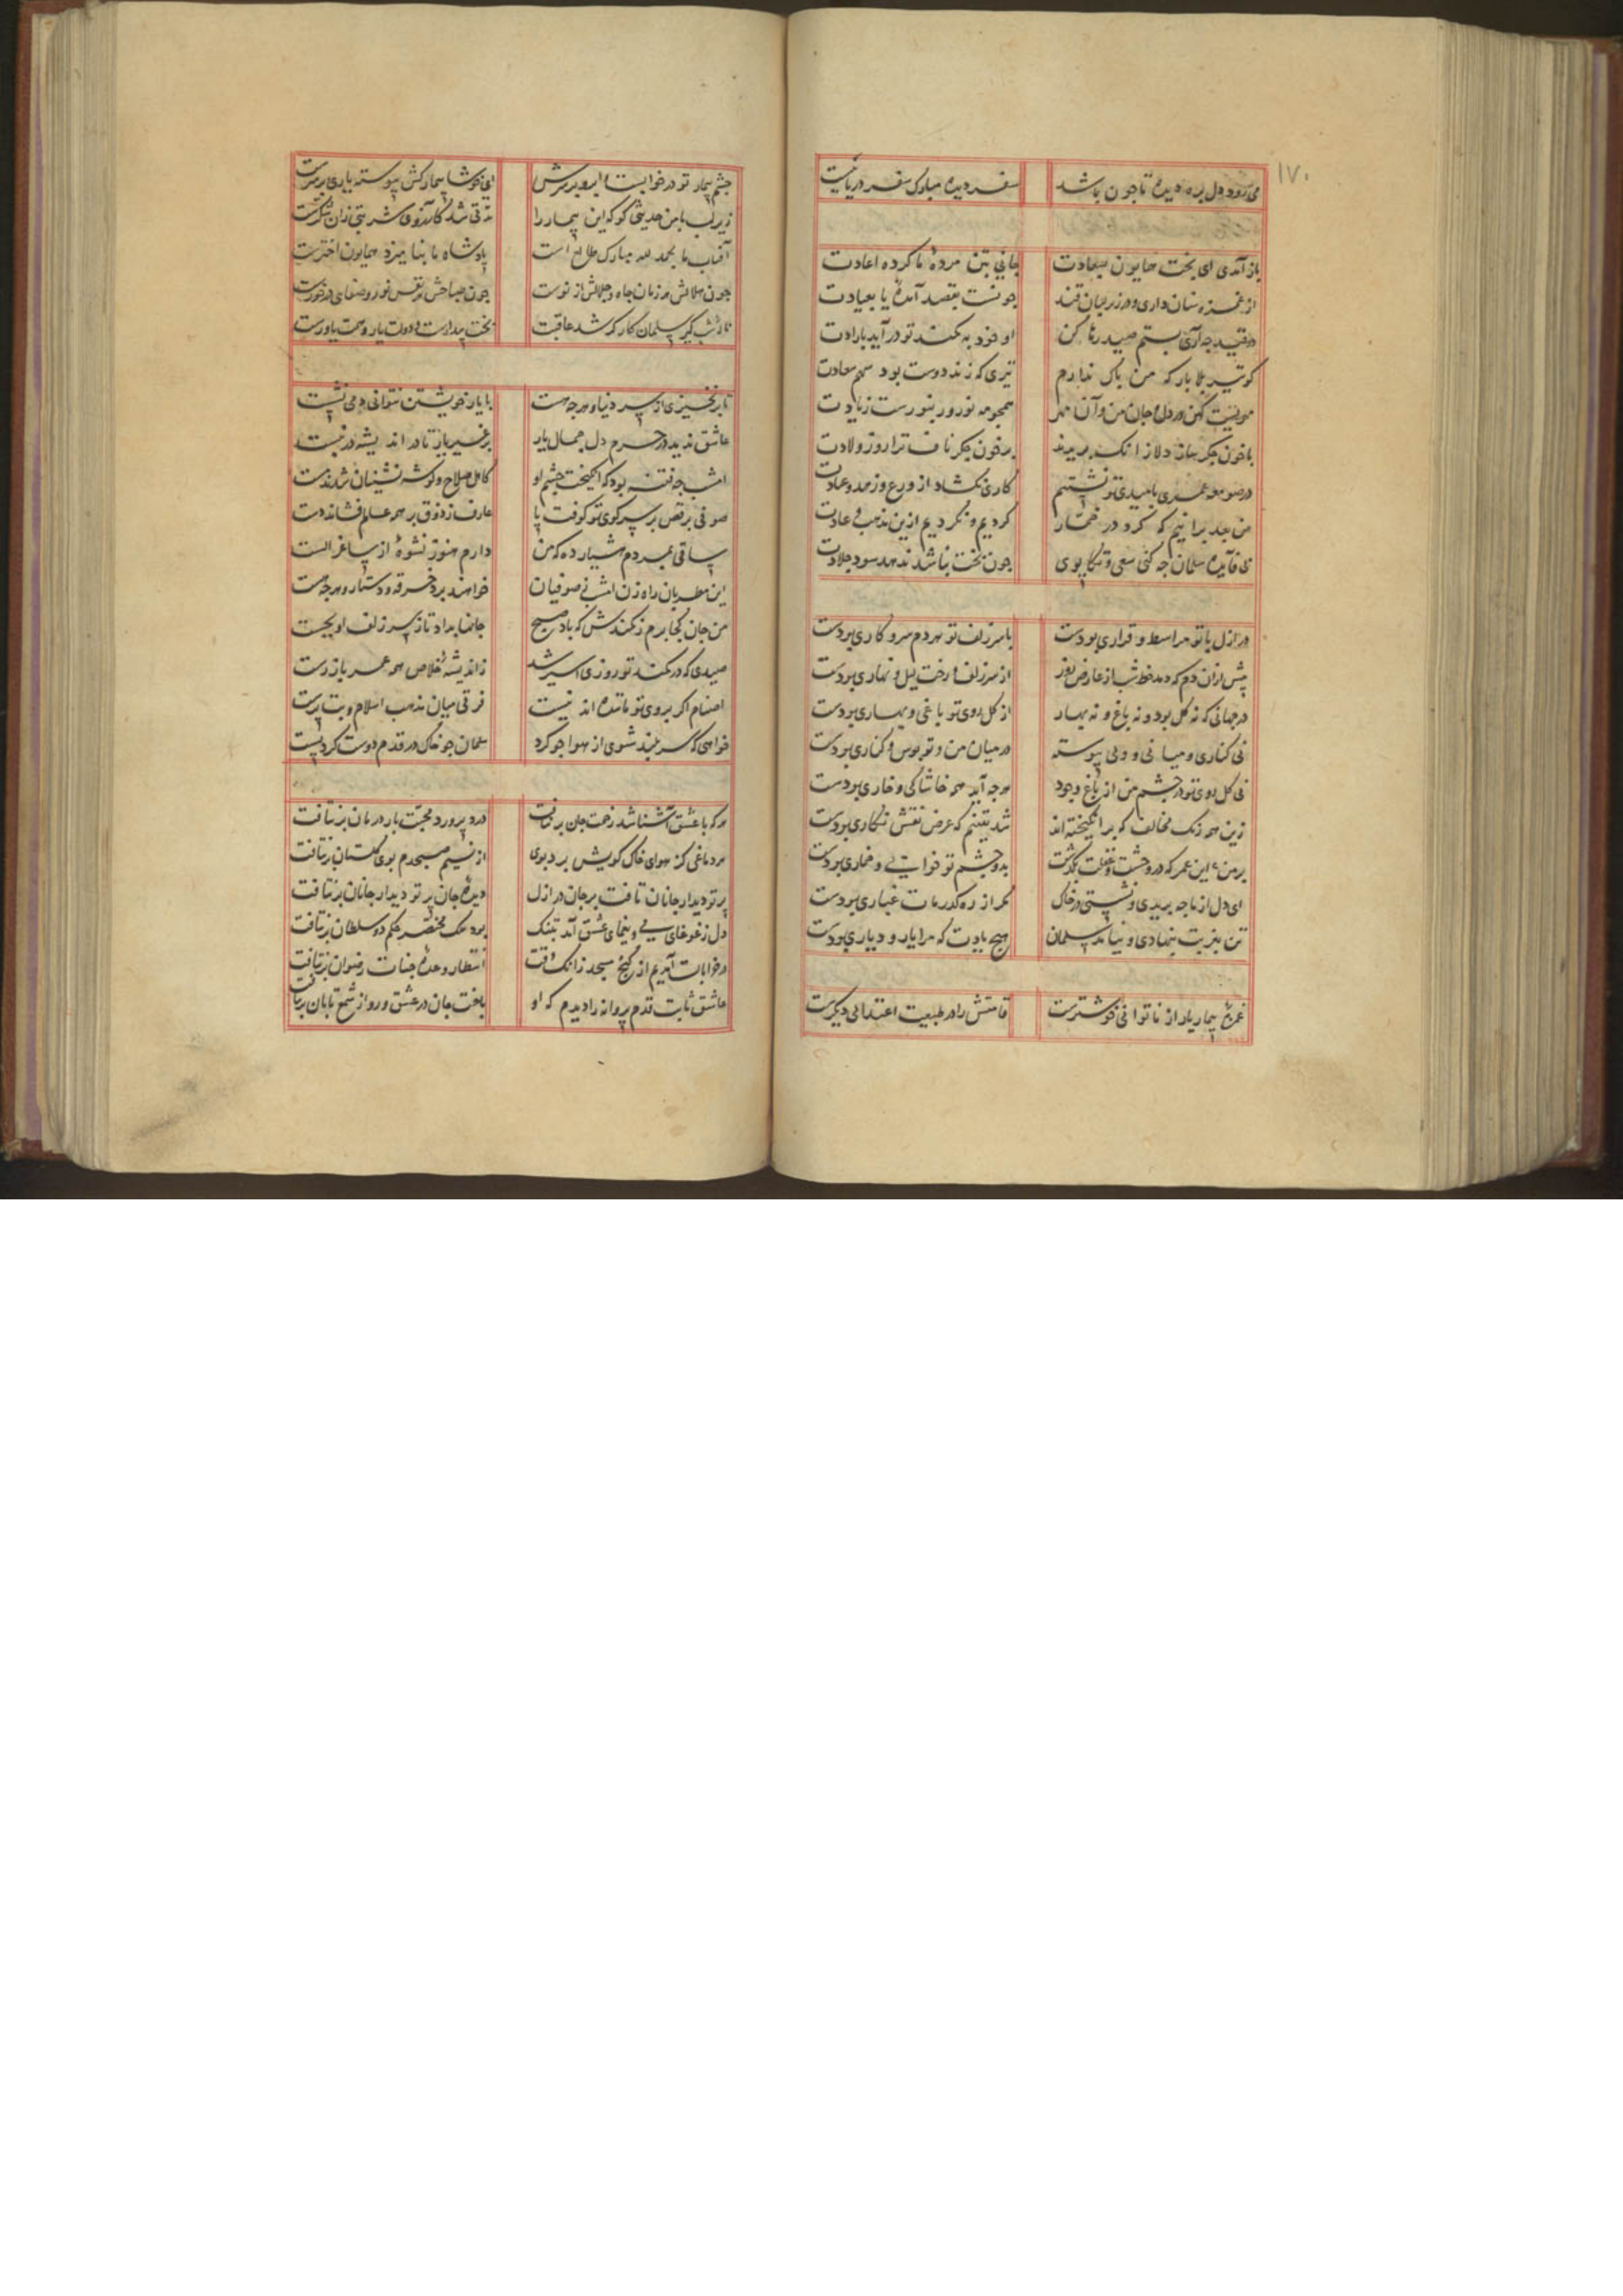 ۱۷۰
می رود دل بره دیده تا جون باشد سفر دیده مبارک سفر دریائیست
باز آمدی ای بخت همایون بسعادت جانی بتن مردهٔ ما کرده اعادت
از غمزه سنان داری و در زیر لبان قند جونست بقصد آمدهٔ یا بعیادت
در قید جه آری بستم صید رها کن او خود به کمند تو در آید بارادت
کو تیر بلا بار که من باک ندارم تیری که زند دوست بود سهم سعادت
مهریست کهن در دل و جان من و آن مهر همجو مه نو روز بنورست زیادت
با خون جکر ساز دلا زانک بریدند بر خون جکر ناف ترا روز ولادت
در صومعه عمری بامیدی تو نشستیم کاری نکشاد از ورع و زهد و عبادت
من بعد برانیم که کرد در خمار کردیم و نکردیم ازین مذهب و عادت
بی فایده سلمان جه کنی سعی و تکاپوی جون بخت نباشد ندهد سود جلادت
در ازل با تو مرا سط و قراری بودست با سر زلف تو هر دم سر و کاری بودست
پیش ازان دم که دمد خط شب از عارض روز از سر زلف و رخت لیل و نهاری بودست
در جهانی که نه کل بود و نه باغ و نه بهار از کل روی تو باغی و بهاری بودست
نی کناری و میانی و ولی پیوسته در میان من و تو بوس و کناری بودست
نی کل روی تو در جشم من از باغ وجود هر جه آید همه خاشاکی و خاری بودست
زین همه رنک مخالف که برانکیخته اند شد یقینم که غرض نقش نکاری بودست
بر من این عمر که در وحشت و غفلت بکذشت بدو جشم تو خوابی و خماری بودست
ای دل از ما جه بریدی و نشستی در خاک مکر از ره کذر مات غباری بودست
تن بغربت بنهادی و نیامد سلمان هیج یادت که مرا یار و دیاری بودست
غمزهٔ بیمار یار از ناتوانی خوشترست قامتش را در طبیعت اعتدالی دیکرست
جشم بیمار تو در خوابست و ابرو بر سرش ای خوشا بیمارکش پیوسته یاری بر سرست
زیر لب با من حدیثی کو که این بیمار را مدتی شد کآرزوی شربتی زان شکرست
آفتاب ما بحمد لله مبارک طالع است پادشاه ما بنامیزد همایون اخترست
جون جلالش هر زمان جاه و جلالش از نوست جون صباحش هر نفس نور و صفای در خورست
سلمان کار که شد عاقبت بخت بیدارست و دولت یار و همت یاورست
تا بر نخیزی از سر دنیا و هر جه هست با یار خویشتن نتوانی دمی نشست
عاشق ندید در حرم دل جمال یار بر غیر یار تا در اندیشه در نبست
امشب جه فتنه بود که انکیخت جشم او کاهل صلاح و کوشه نشینان شدند مست
صوفی برقص بر سر کوی تو کوفت پا عارف ز ذوق بر همه عالم فشاند دست
ساقی بمردم هشیار ده که من دارم هنوز نشوهٔ از ساغر الست
این مطربان راه زن امشب ز صوفیان خواهند برد خرقه و دستار و هر جه هست
من جان کجا برم ز کمندش که باد صبح جانها بداد تا ز سر زلف او بجست
صیدی که در کمند تو روزی اسیر شد ز اندیشهٔ خلاص همه عمر باز رست
اصنام اکر بروی تو مانند اند نیست فرقی میان مذهب اسلام و بت پرست
خواهی که سر بلند شوی از هوا جو کرد سلمان جو خاک در قدم دوست کرد پست
هر که با عشق آشنا شد زحمت جان بر نتافت درد پرورد محبت بار درمان بر نتافت
هر دماغی کز هوای خاک کویش برد بوی از نسیم صبحدم بوی کلستان بر نتافت
پرتو دیدار جانان تافت بر جان در ازل دیدهٔ جان پرتو دیدار جانان بر نتافت
دل ز غوغای و یغمای عشق آمد بتنک بود ملک مختصر حکم دو سلطان بر نتافت
در خرابات آمدیم از کنج مسجد زانک وقت انتظار وعدهٔ جنات رضوان بر نتافت
عاشق ثابت قدم پروانه را دیدم که او باخت جان در عشق و رو از شمع تابان بر نتافت